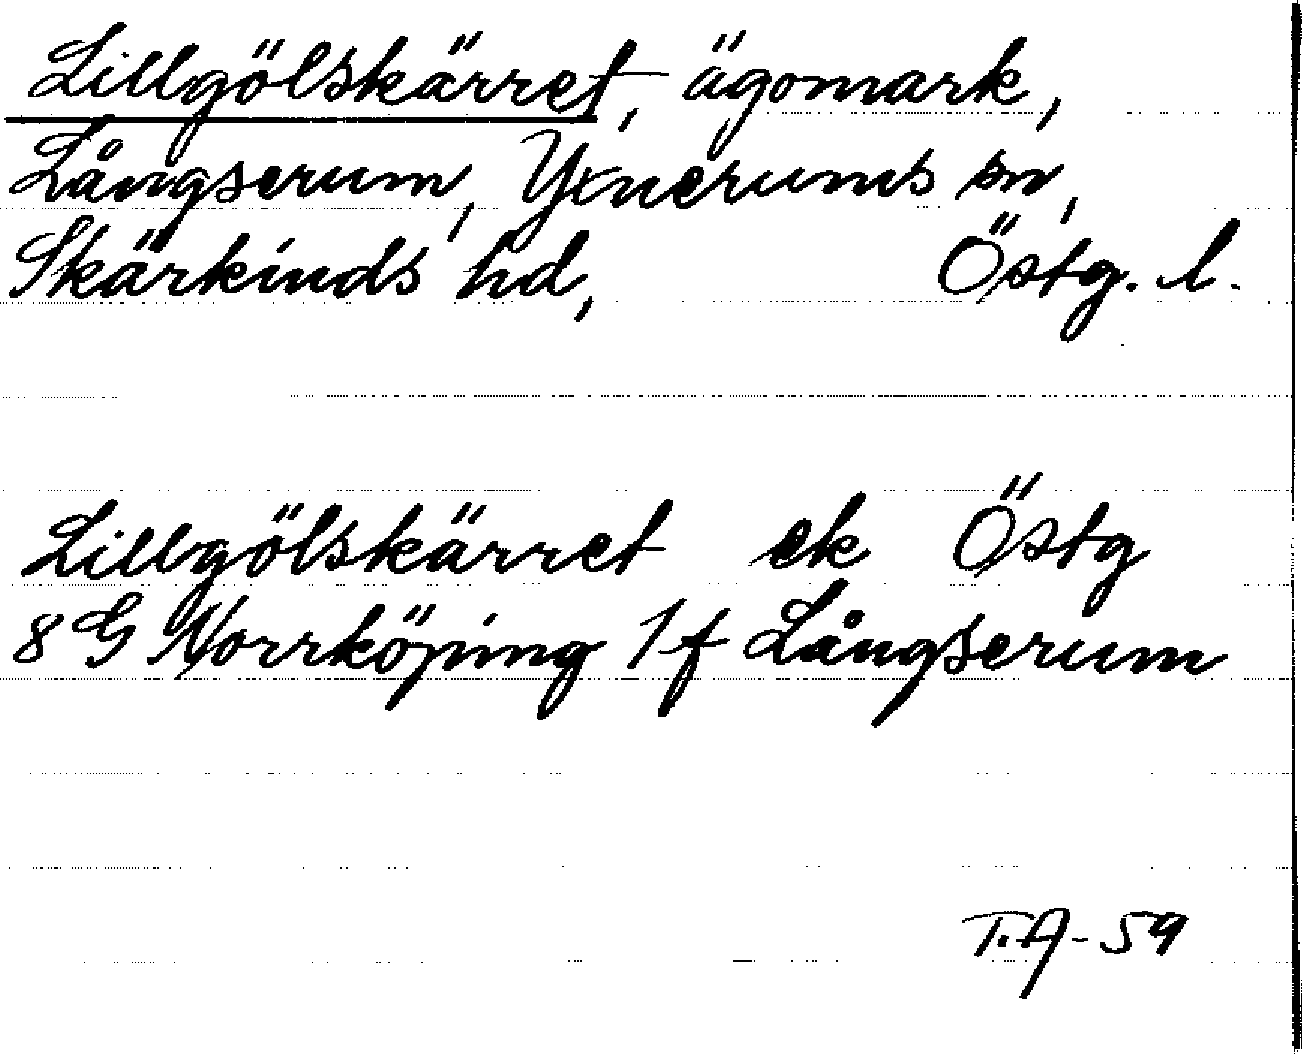 Lillgölskärret, ägomark,
Långserum, Yxnerums sn,
Skärkinds hd, Östg. l.
Lillgölskärret ek Östg
8 G Norrköping 1 f Långserum
T.A-59